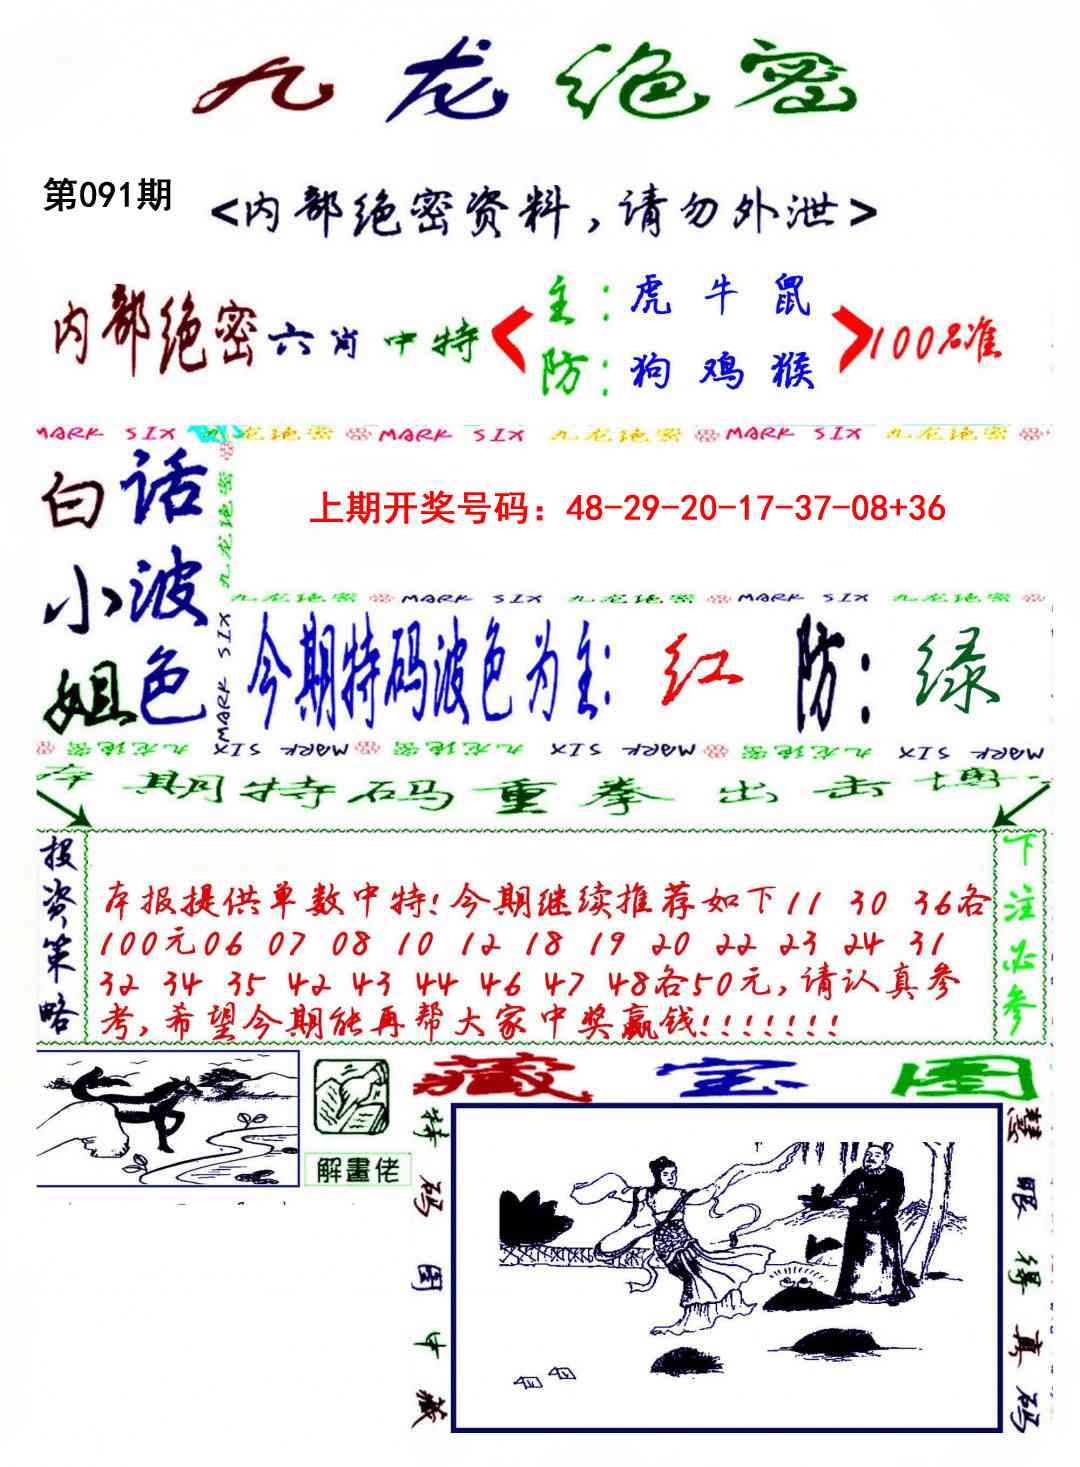 九龙绝密
第091期
<内部绝密资料,请勿外泄>
内部绝密六肖中特
主:虎 牛 鼠
防:狗 鸡 猴
100%准
MARK SIX 九龙绝密 MARK SIX 九龙绝密 MARK SIX 九龙绝密
白话小波姐色
九龙绝密
MARK SIX
上期开奖号码：48-29-20-17-37-08+36
九龙绝密 MARK SIX 九龙绝密 MARK SIX 九龙绝密
今期特码波色为主: 红 防: 绿
九龙绝密 MARK SIX 九龙绝密 MARK SIX 九龙绝密 MARK SIX
本期特码重拳出击博
投资策略
本报提供单数中特!今期继续推荐如下11 30 36各
100元06 07 08 10 12 18 19 20 22 23 24 31
32 34 35 42 43 44 46 47 48各50元,请认真参
考,希望今期能再帮大家中奖赢钱!!!!!!!
下注必参
解畫佬
藏宝图
特码图中藏
慧眼得真码